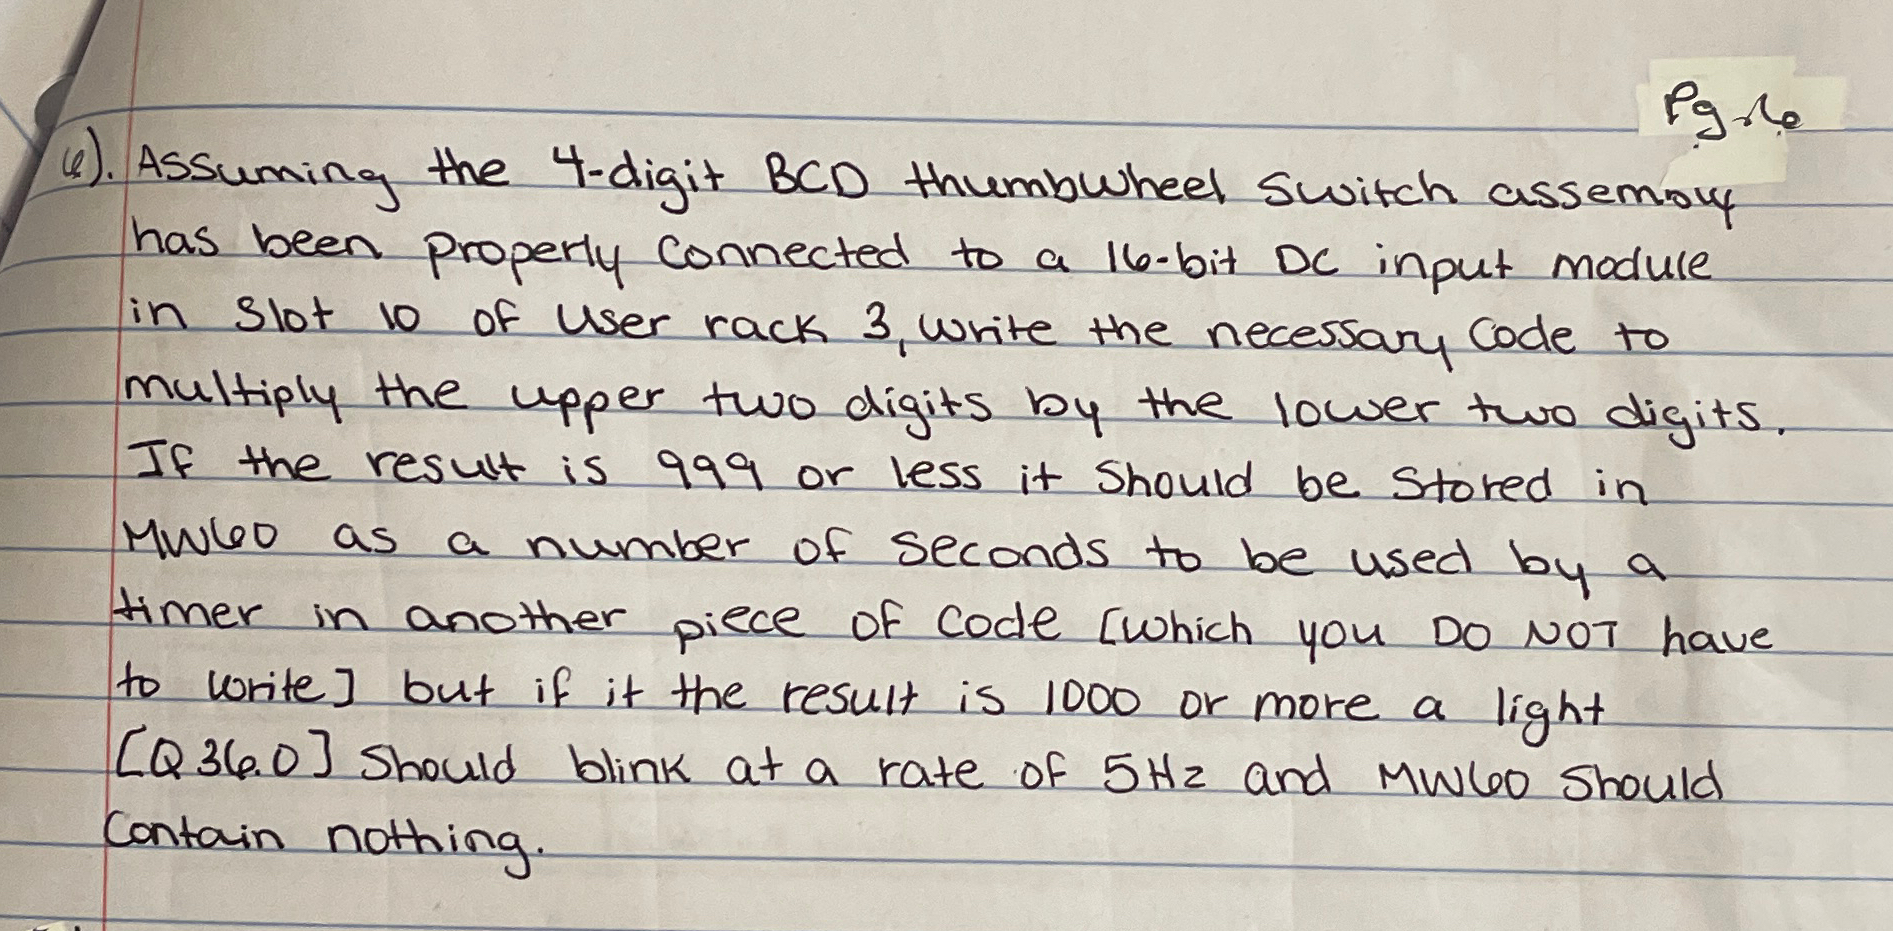 Pg 6
6). Assuming the 4-digit BCD thumbwheel switch assembly
has been properly connected to a 16-bit DC input module
in slot 10 of user rack 3, write the necessary code to
multiply the upper two digits by the lower two digits.
If the result is 999 or less it should be stored in
MW60 as a number of seconds to be used by a
timer in another piece of code [which you DO NOT have
to write] but if it the result is 1000 or more a light
[Q36.0] should blink at a rate of 5Hz and MW60 should
contain nothing.